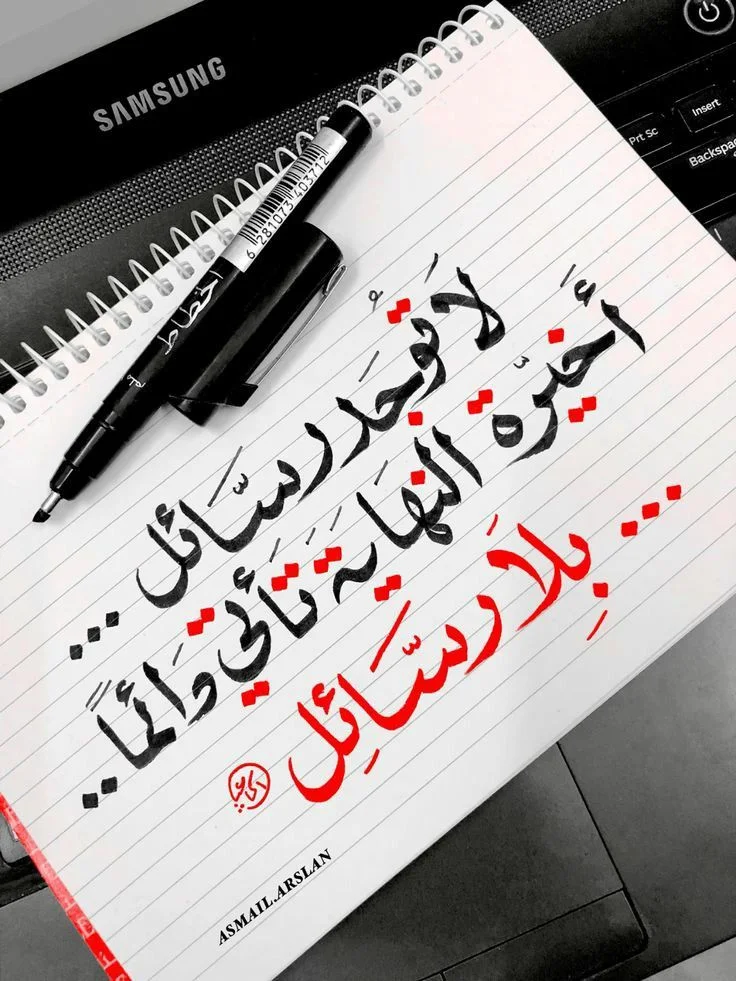 SAMSUNG
Prt Sc
Insert
Backspac
6 281073 403712
الخطاط
لَا تُوجَد رسَّائل ...
أَخيرّة النهَاية تَأتي دَائماً ..
بِلاَ رسَّائِل ...
ASMAIL.ARSLAN